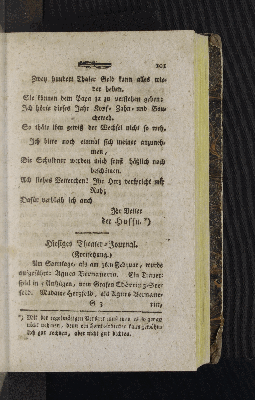 101
Zwey hundert Thaler Geld kann alles wie-
der heben.
Sie können dem Papa ja zu verstehen geben:
Ich hörte dieses Jahr Kopf- Zahn- und
So thäte ihm gewiß der Wechsel nicht so weh,
Ich bitte noch einmal sich meiner anzuneh-
men,
Die Schuldner werden mich sonst häßlich noch
beschämen.
Ach liebes Vetterchen! Ihr Herz verspricht mir
Ruh;
Dafür verbleib ich auch
Ihr Vetter
der Hussu. *)
Hiesiges Theater-Journal.
(Fortsetzung.)
Am Sonntage, als am 7ten Februar, wurde
aufgeführt: Agnes Bernauerin. Ein Trauer-
spiel in 5 Aufzügen, vom Grafen Törring-See-
feld. Madame Herzfeld, als Agnes Bernaue-
G 3 rin,
*) Mit der regelmäßigen Versart muß man es so genau
nicht nehmen, denn ein Komödiant kann zwar
sich gut machen, aber nicht gut dichten.